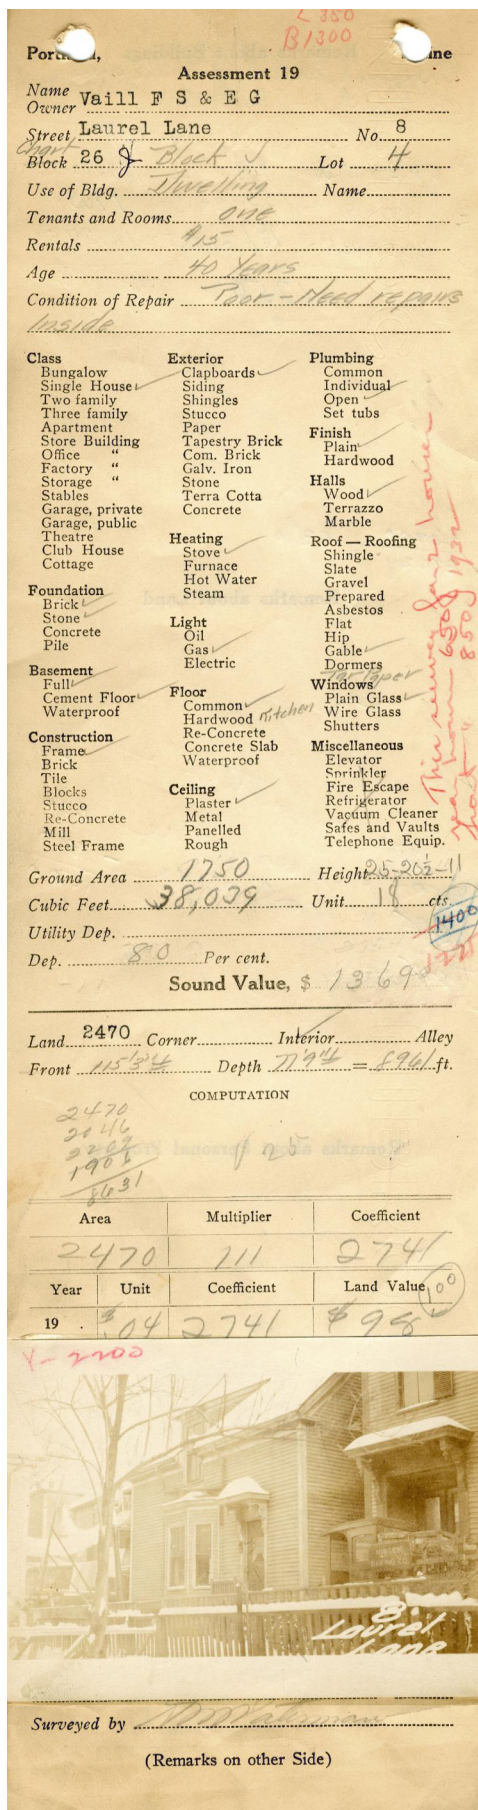 L 350
B 1300
Portland, Maine
Assessment 19
Name
Owner Vaill F S & E G
Street Laurel Lane No. 8
Chart
Block 26 J Block J Lot 4
Use of Bldg. Dwelling Name
Tenants and Rooms one
Rentals $15
Age 40 Years
Condition of Repair Poor - Need repairs
Inside
Class
Bungalow
Single House
Two family
Three family
Apartment
Store Building
Office "
Factory "
Storage "
Stables
Garage, private
Garage, public
Theatre
Club House
Cottage
Foundation
Brick
Stone
Concrete
Pile
Basement
Full
Cement Floor
Waterproof
Construction
Frame
Brick
Tile
Blocks
Stucco
Re-Concrete
Mill
Steel Frame
Exterior
Clapboards
Siding
Shingles
Stucco
Paper
Tapestry Brick
Com. Brick
Galv. Iron
Stone
Terra Cotta
Concrete
Heating
Stove
Furnace
Hot Water
Steam
Light
Oil
Gas
Electric
Floor
Common
Hardwood Kitchen
Re-Concrete
Concrete Slab
Waterproof
Ceiling
Plaster
Metal
Panelled
Rough
Plumbing
Common
Individual
Open
Set tubs
Finish
Plain
Hardwood
Halls
Wood
Terrazzo
Marble
Roof — Roofing
Shingle
Slate
Gravel
Prepared
Asbestos
Flat
Hip
Gable
Dormers
Tar Paper
Windows
Plain Glass
Wire Glass
Shutters
Miscellaneous
Elevator
Sprinkler
Fire Escape
Refrigerator
Vacuum Cleaner
Safes and Vaults
Telephone Equip.
Ground Area 1750 Height 25-20½-11
Cubic Feet 38,039 Unit 18 cts.
1400
Utility Dep.
Dep. 80 Per cent.
Sound Value, $ 1369
Land 2470 Corner Interior Alley
Front Depth = 8961 ft.
COMPUTATION
2470
2046
8631
Area Multiplier Coefficient
2470 111 2741
Year Unit Coefficient Land Value
100
19 $.04 2741 $98
Y-2200
8
Laurel
Lane
Surveyed by
(Remarks on other Side)